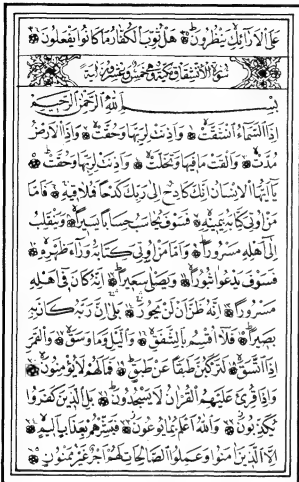 عَلَى الْأَرَائِكِ يَنْظُرُونَ هَلْ ثُوِّبَ الْكُفَّارُ مَا كَانُوا يَفْعَلُونَ
سُورَةُ الْاِنْشِقَاقِ مَكِّيَّةٌ وَهِيَ خَمْسٌ وَعِشْرُونَ آيَةً
بِسْمِ اللَّهِ الرَّحْمَنِ الرَّحِيمِ
إِذَا السَّمَاءُ انْشَقَّتْ وَأَذِنَتْ لِرَبِّهَا وَحُقَّتْ وَإِذَا الْأَرْضُ
مُدَّتْ وَأَلْقَتْ مَا فِيهَا وَتَخَلَّتْ وَأَذِنَتْ لِرَبِّهَا وَحُقَّتْ
يَا أَيُّهَا الْإِنْسَانُ إِنَّكَ كَادِحٌ إِلَى رَبِّكَ كَدْحًا فَمُلَاقِيهِ فَأَمَّا
مَنْ أُوتِيَ كِتَابَهُ بِيَمِينِهِ فَسَوْفَ يُحَاسَبُ حِسَابًا يَسِيرًا وَيَنْقَلِبُ
إِلَى أَهْلِهِ مَسْرُورًا وَأَمَّا مَنْ أُوتِيَ كِتَابَهُ وَرَاءَ ظَهْرِهِ
فَسَوْفَ يَدْعُوا ثُبُورًا وَيَصْلَى سَعِيرًا إِنَّهُ كَانَ فِي أَهْلِهِ
مَسْرُورًا إِنَّهُ ظَنَّ أَنْ لَنْ يَحُورَ بَلَى إِنَّ رَبَّهُ كَانَ بِهِ
بَصِيرًا فَلَا أُقْسِمُ بِالشَّفَقِ وَاللَّيْلِ وَمَا وَسَقَ وَالْقَمَرِ
إِذَا اتَّسَقَ لَتَرْكَبُنَّ طَبَقًا عَنْ طَبَقٍ فَمَا لَهُمْ لَا يُؤْمِنُونَ
وَإِذَا قُرِئَ عَلَيْهِمُ الْقُرْآنُ لَا يَسْجُدُونَ بَلِ الَّذِينَ كَفَرُوا
يُكَذِّبُونَ وَاللَّهُ أَعْلَمُ بِمَا يُوعُونَ فَبَشِّرْهُمْ بِعَذَابٍ أَلِيمٍ
إِلَّا الَّذِينَ آمَنُوا وَعَمِلُوا الصَّالِحَاتِ لَهُمْ أَجْرٌ غَيْرُ مَمْنُونٍ